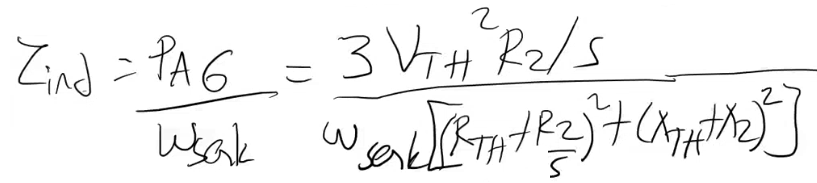 τind = PAG / ωsenk = 3 VTH² R2/s / ωsenk[(RTH + R2/s)² + (XTH + X2)²]